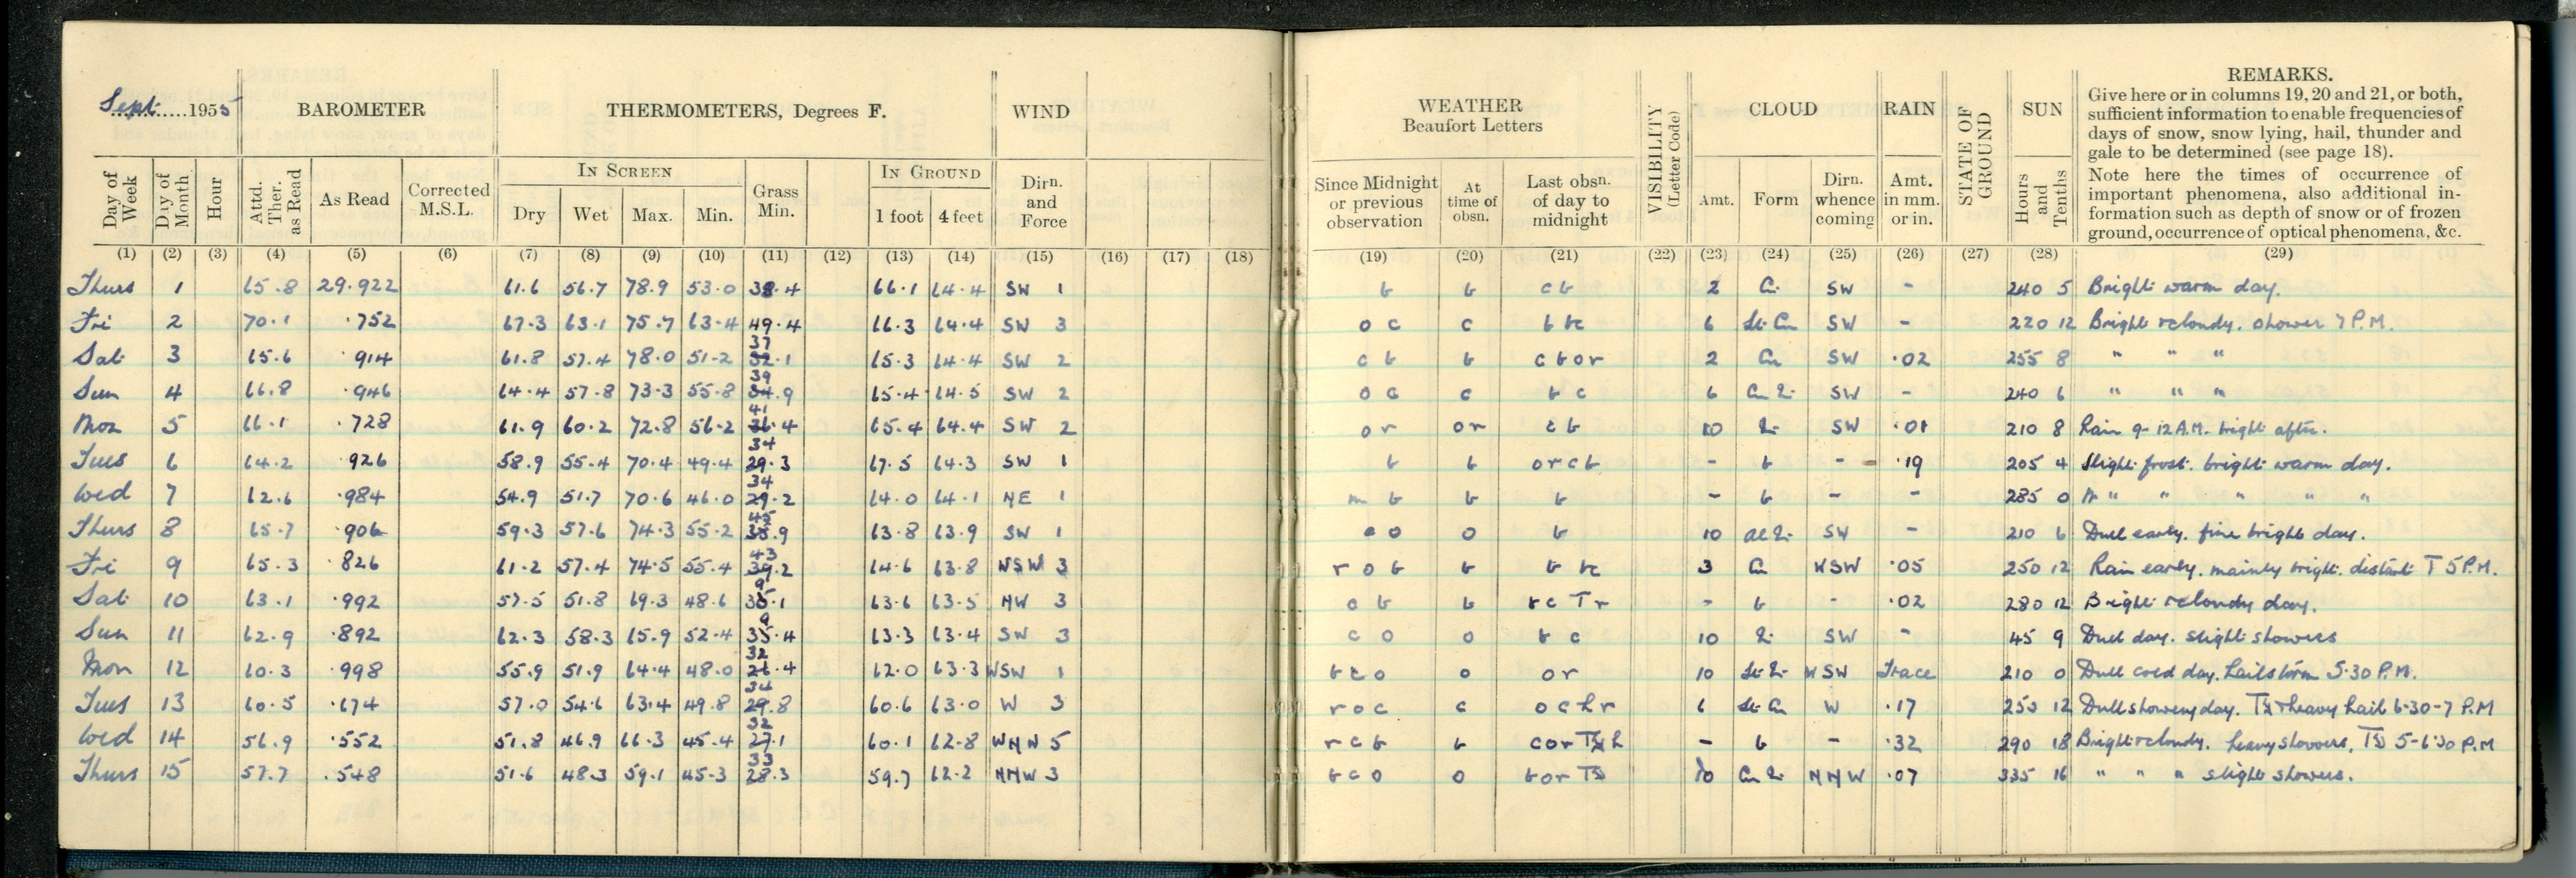 Sept. 1955 BAROMETER THERMOMETERS, Degrees F. WIND
Day of Week Day of Month Hour Attd. Ther. as Read As Read Corrected M.S.L. IN SCREEN Dry Wet Max. Min. Grass Min. IN GROUND 1 foot 4 feet Dirn. and Force
(1) (2) (3) (4) (5) (6) (7) (8) (9) (10) (11) (12) (13) (14) (15) (16) (17) (18)
Thurs 1 65.8 29.922 61.6 56.7 78.9 53.0 38.4 66.1 64.4 SW 1
Fri 2 70.1 .752 67.3 63.1 75.7 63.4 49.4 66.3 64.4 SW 3
Sat 3 65.6 .914 61.8 57.4 78.0 51.2 37.1 65.3 64.4 SW 2
Sun 4 66.8 .946 64.4 57.8 73.3 55.8 39.9 65.4 64.5 SW 2
Mon 5 66.1 .728 61.9 60.2 72.8 56.2 41.4 65.4 64.4 SW 2
Tues 6 64.2 .926 58.9 55.4 70.4 49.4 34.3 67.5 64.3 SW 1
Wed 7 62.6 .984 54.9 51.7 70.6 46.0 34.2 64.0 64.1 NE 1
Thurs 8 65.7 .906 59.3 57.6 74.3 55.2 45.9 63.8 63.9 SW 1
Fri 9 65.3 .826 61.2 57.4 74.5 55.4 43.2 64.6 63.8 WSW 3
Sat 10 63.1 .992 57.5 51.8 69.3 48.6 63.6 63.5 NW 3
Sun 11 62.9 .892 62.3 58.3 65.9 52.4 63.3 63.4 SW 3
Mon 12 60.3 .998 55.9 51.9 64.4 48.0 32.4 62.0 63.3 WSW 1
Tues 13 60.5 .674 57.0 54.6 63.4 49.8 34.8 60.6 63.0 W 3
Wed 14 56.9 .552 51.8 46.9 66.3 45.4 32.1 60.1 62.8 WNW 5
Thurs 15 57.7 .548 51.6 48.3 59.1 45.3 33.3 59.7 62.2 NNW 3
WEATHER Beaufort Letters VISIBILITY (Letter Code) CLOUD RAIN STATE OF GROUND SUN REMARKS.
Give here or in columns 19, 20 and 21, or both,
sufficient information to enable frequencies of
days of snow, snow lying, hail, thunder and
gale to be determined (see page 18).
Note here the times of occurrence of
important phenomena, also additional in-
formation such as depth of snow or of frozen
ground, occurrence of optical phenomena, &c.
Since Midnight or previous observation At time of obsn. Last obsn. of day to midnight Amt. Form Dirn. whence coming Amt. in mm. or in. Hours and Tenths
(19) (20) (21) (22) (23) (24) (25) (26) (27) (28) (29)
b b cb 2 Cu SW - 240 5 Bright warm day.
oc c b bc 6 St Cu SW - 220 12 Bright & cloudy. shower 7 P.M.
cb b cbor 2 Cu SW .02 255 8 " " "
oc c bc 6 Cu SW - 240 6 " " "
or or cb 10 SW .01 210 8 Rain 9-12 A.M. bright after.
b b orcb - b - .19 205 4 Slight frost. bright warm day.
m b b b - b - - 285 0 " " " " "
o b 10 SW - 210 6 Dull early. fine bright day.
rob b b bc 3 Cu WSW .05 250 12 Rain early. mainly bright. distant T 5 P.M.
cb b bcTr - b - .02 280 12 Bright & cloudy day.
co o bc 10 SW - 45 9 Dull day. slight showers
bco o or 10 WSW Trace 210 0 Dull cold day. hailstorm 5.30 P.M.
roc c ochr 6 St Cu W .17 250 12 Dull showery day. & heavy hail 6-30-7 P.M
rcb b cor - b - .32 290 18 Bright & cloudy. heavy showers. 5-6.30 P.M
bco o bor 10 Cu NNW .07 335 16 " " " slight showers.